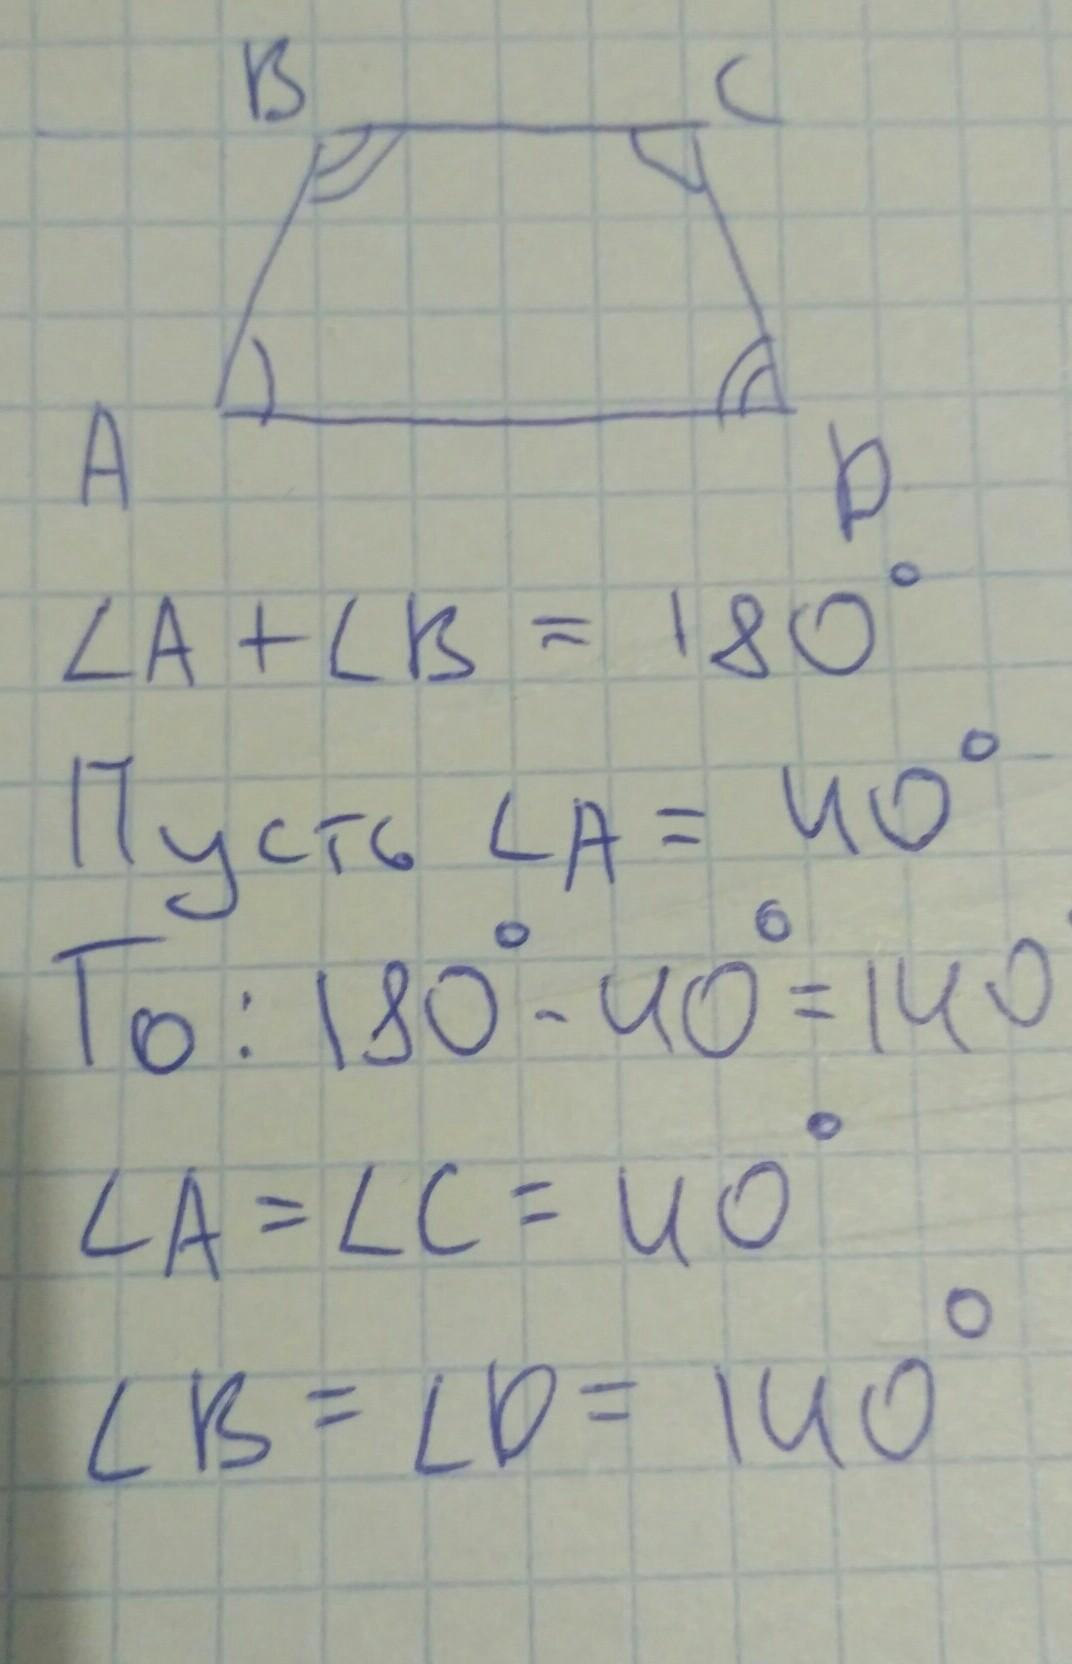 B C
A D
∠A + ∠B = 180°
Пусть ∠A = 40°
То: 180° - 40° = 140°
∠A = ∠C = 40°
∠B = ∠D = 140°